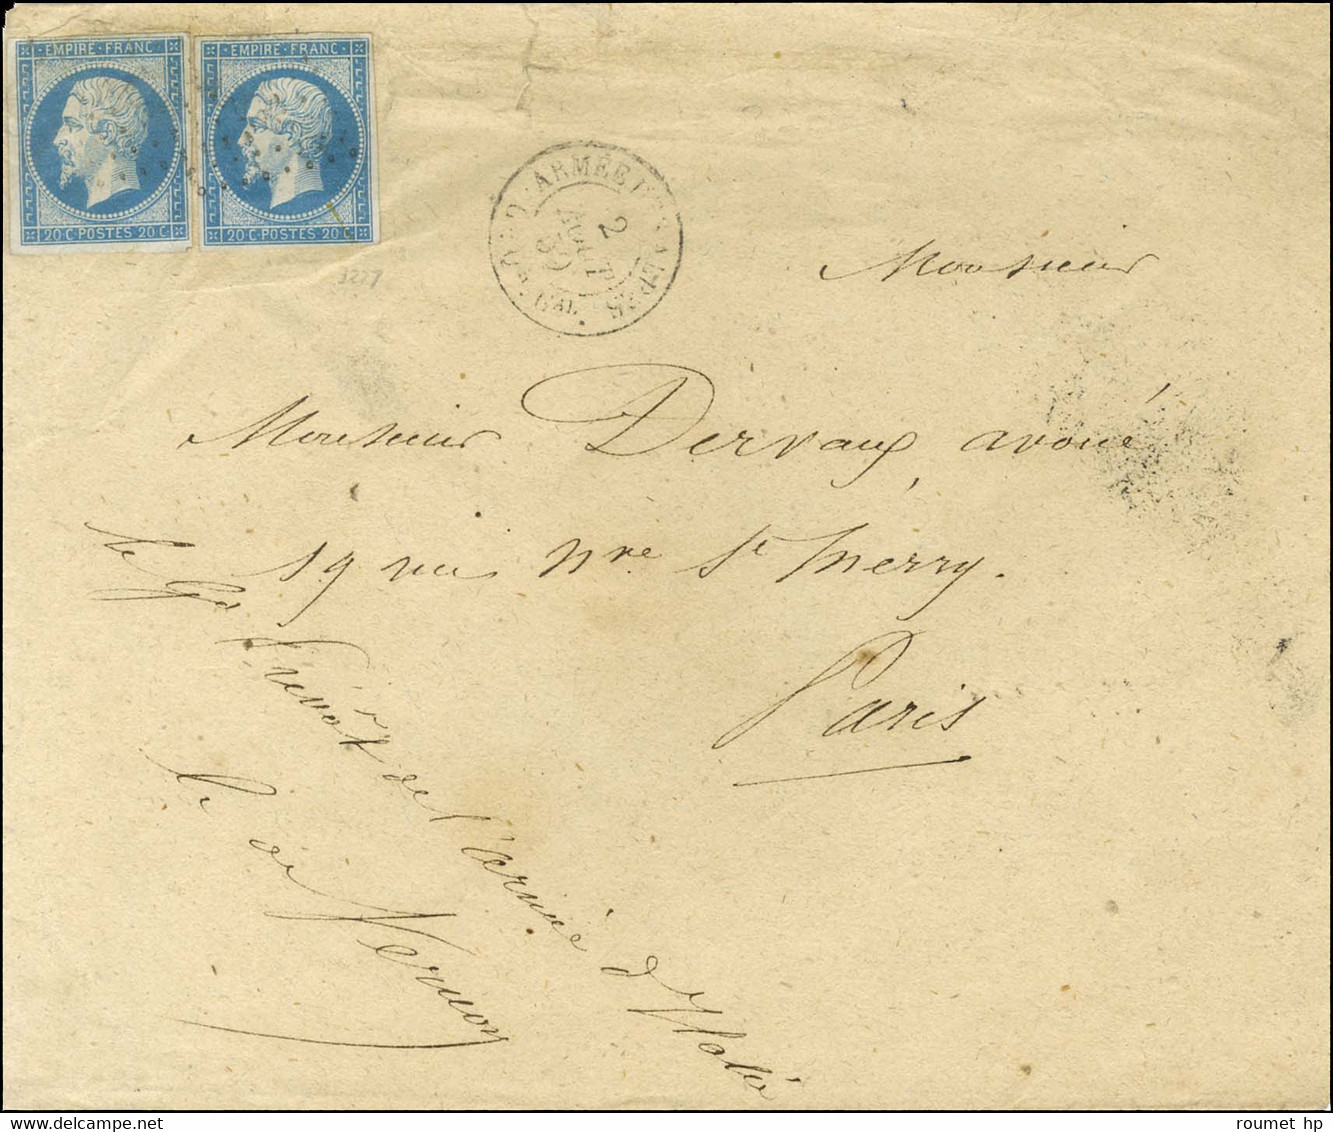 EMPIRE · FRANC
20 C · POSTES 20 C
EMPIRE · FRANC
20 C · POSTES 20 C
ARMÉE D. ALPES
Gd. Q. Gal.
2
AOUT
59
3227
Monsieur
Monsieur Dervaux, avoué
19 rue Nve St Merry.
Paris
le Gd Prévôt de l'armée d'Italie
de Vernon
roumet hp